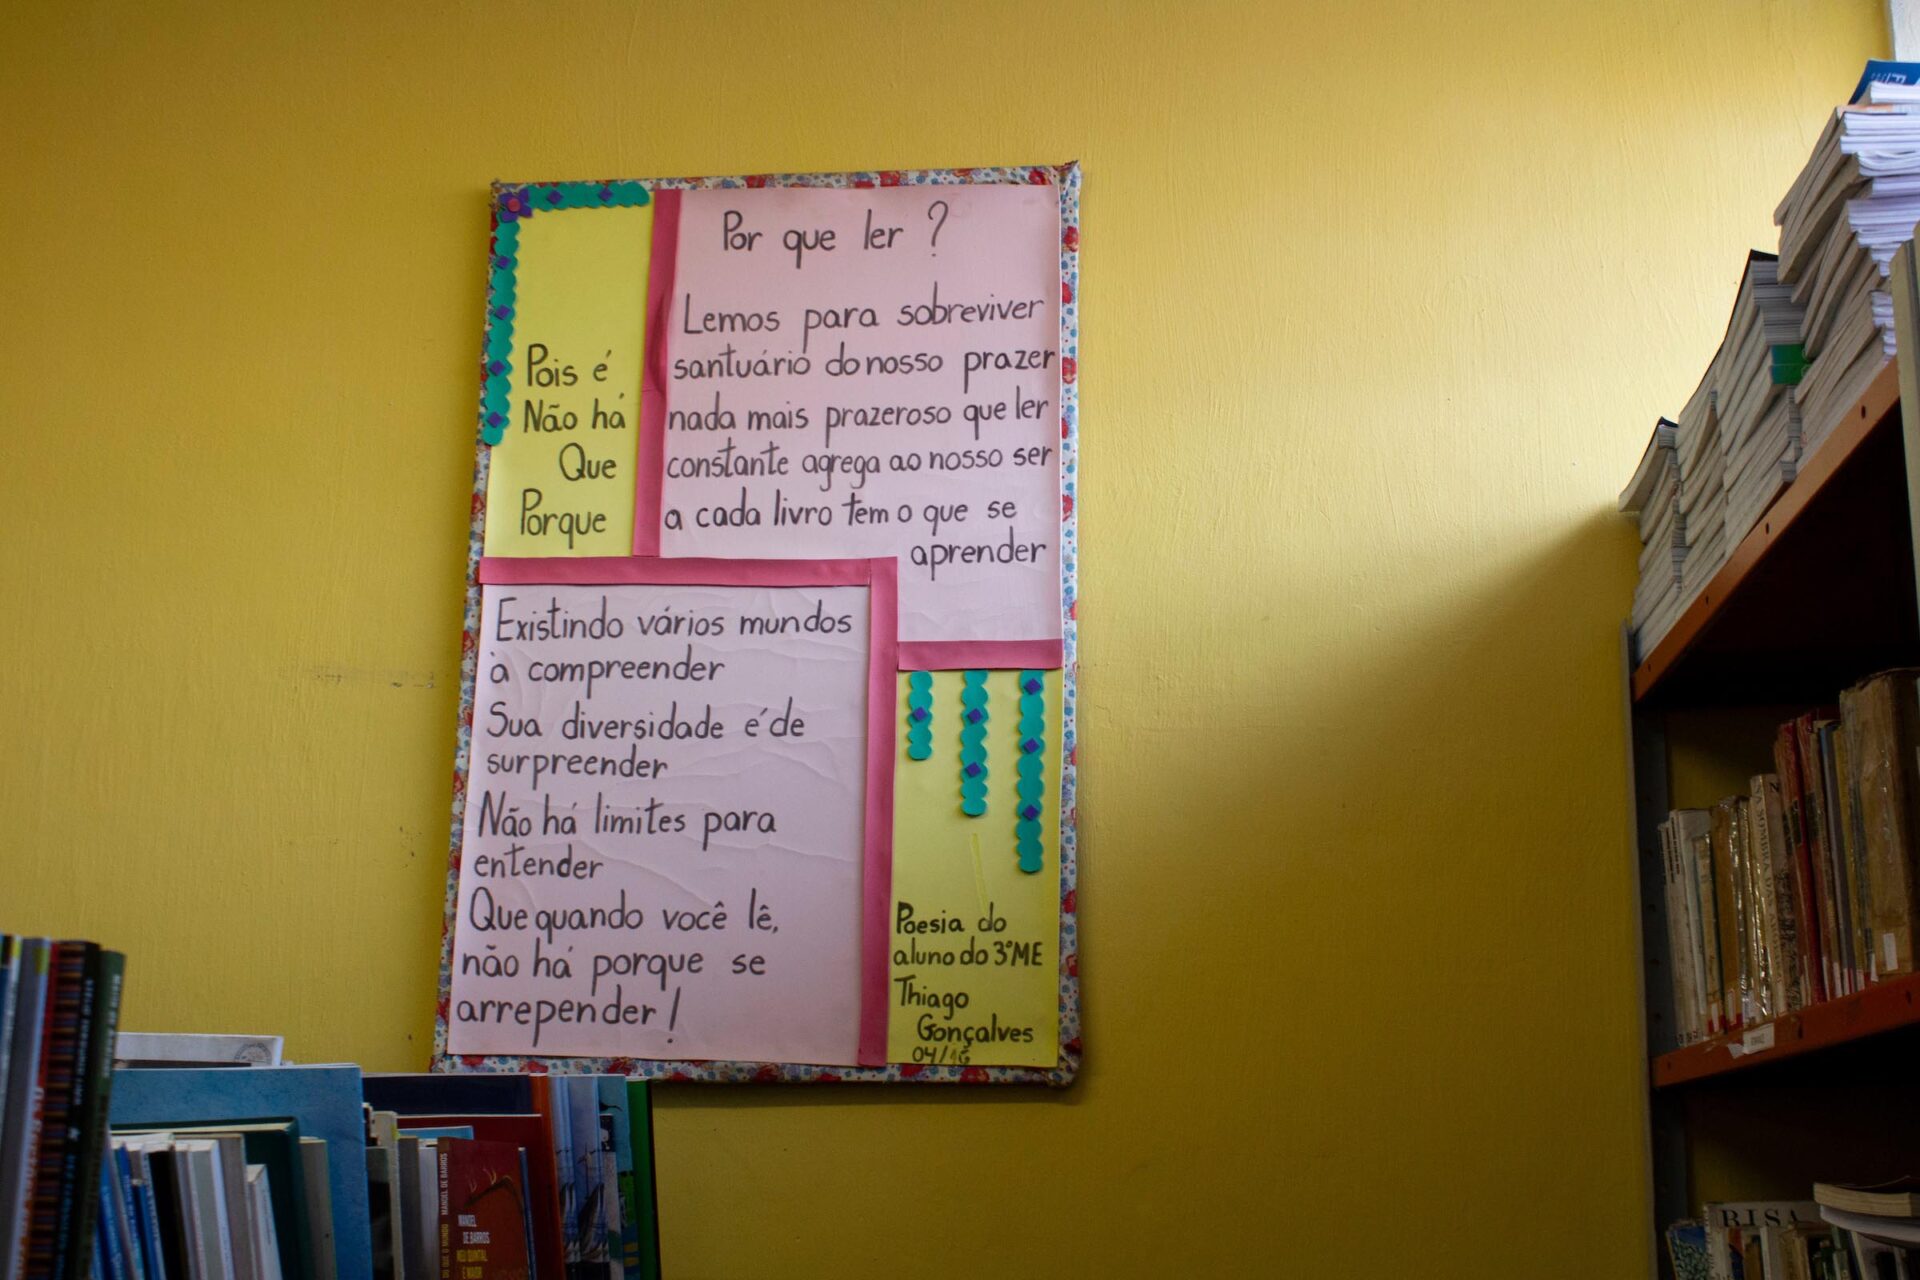 Por que ler ?
Lemos para sobreviver
santuário do nosso prazer
nada mais prazeroso que ler
constante agrega ao nosso ser
a cada livro tem o que se
aprender
Pois é
Não há
Que
Porque
Existindo vários mundos
à compreender
Sua diversidade é de
surpreender
Não há limites para
entender
Que quando você lê,
não há porque se
arrepender !
Poesia do
aluno do 3°ME
Thiago
Gonçalves
04/16
MANOEL DE BARROS
MANOEL
DE BARROS
MEU QUINTAL
É MAIOR
BISA